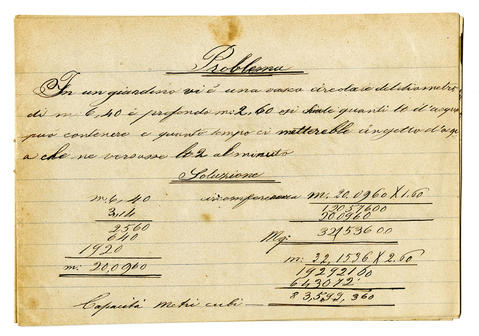 Problema
In un giardino vi è una vasca circolare del diametro
di m. 6,40 è profondo m: 2,60 si quanti lt d'acqua
può contenere e quanto tempo ci metterebbe un getto d'acqu
a che ne versasse lt 2 al minuto
Soluzione
m: 6,40
3,14
2560
640
1920
m: 20,0960
circonferenza m: 20,0960 X 1.60
12057600
200960
Mq: 32153600
m: 32,1536 X 2.60
19292100
643072
83,599,360
Capacità metri cubi —